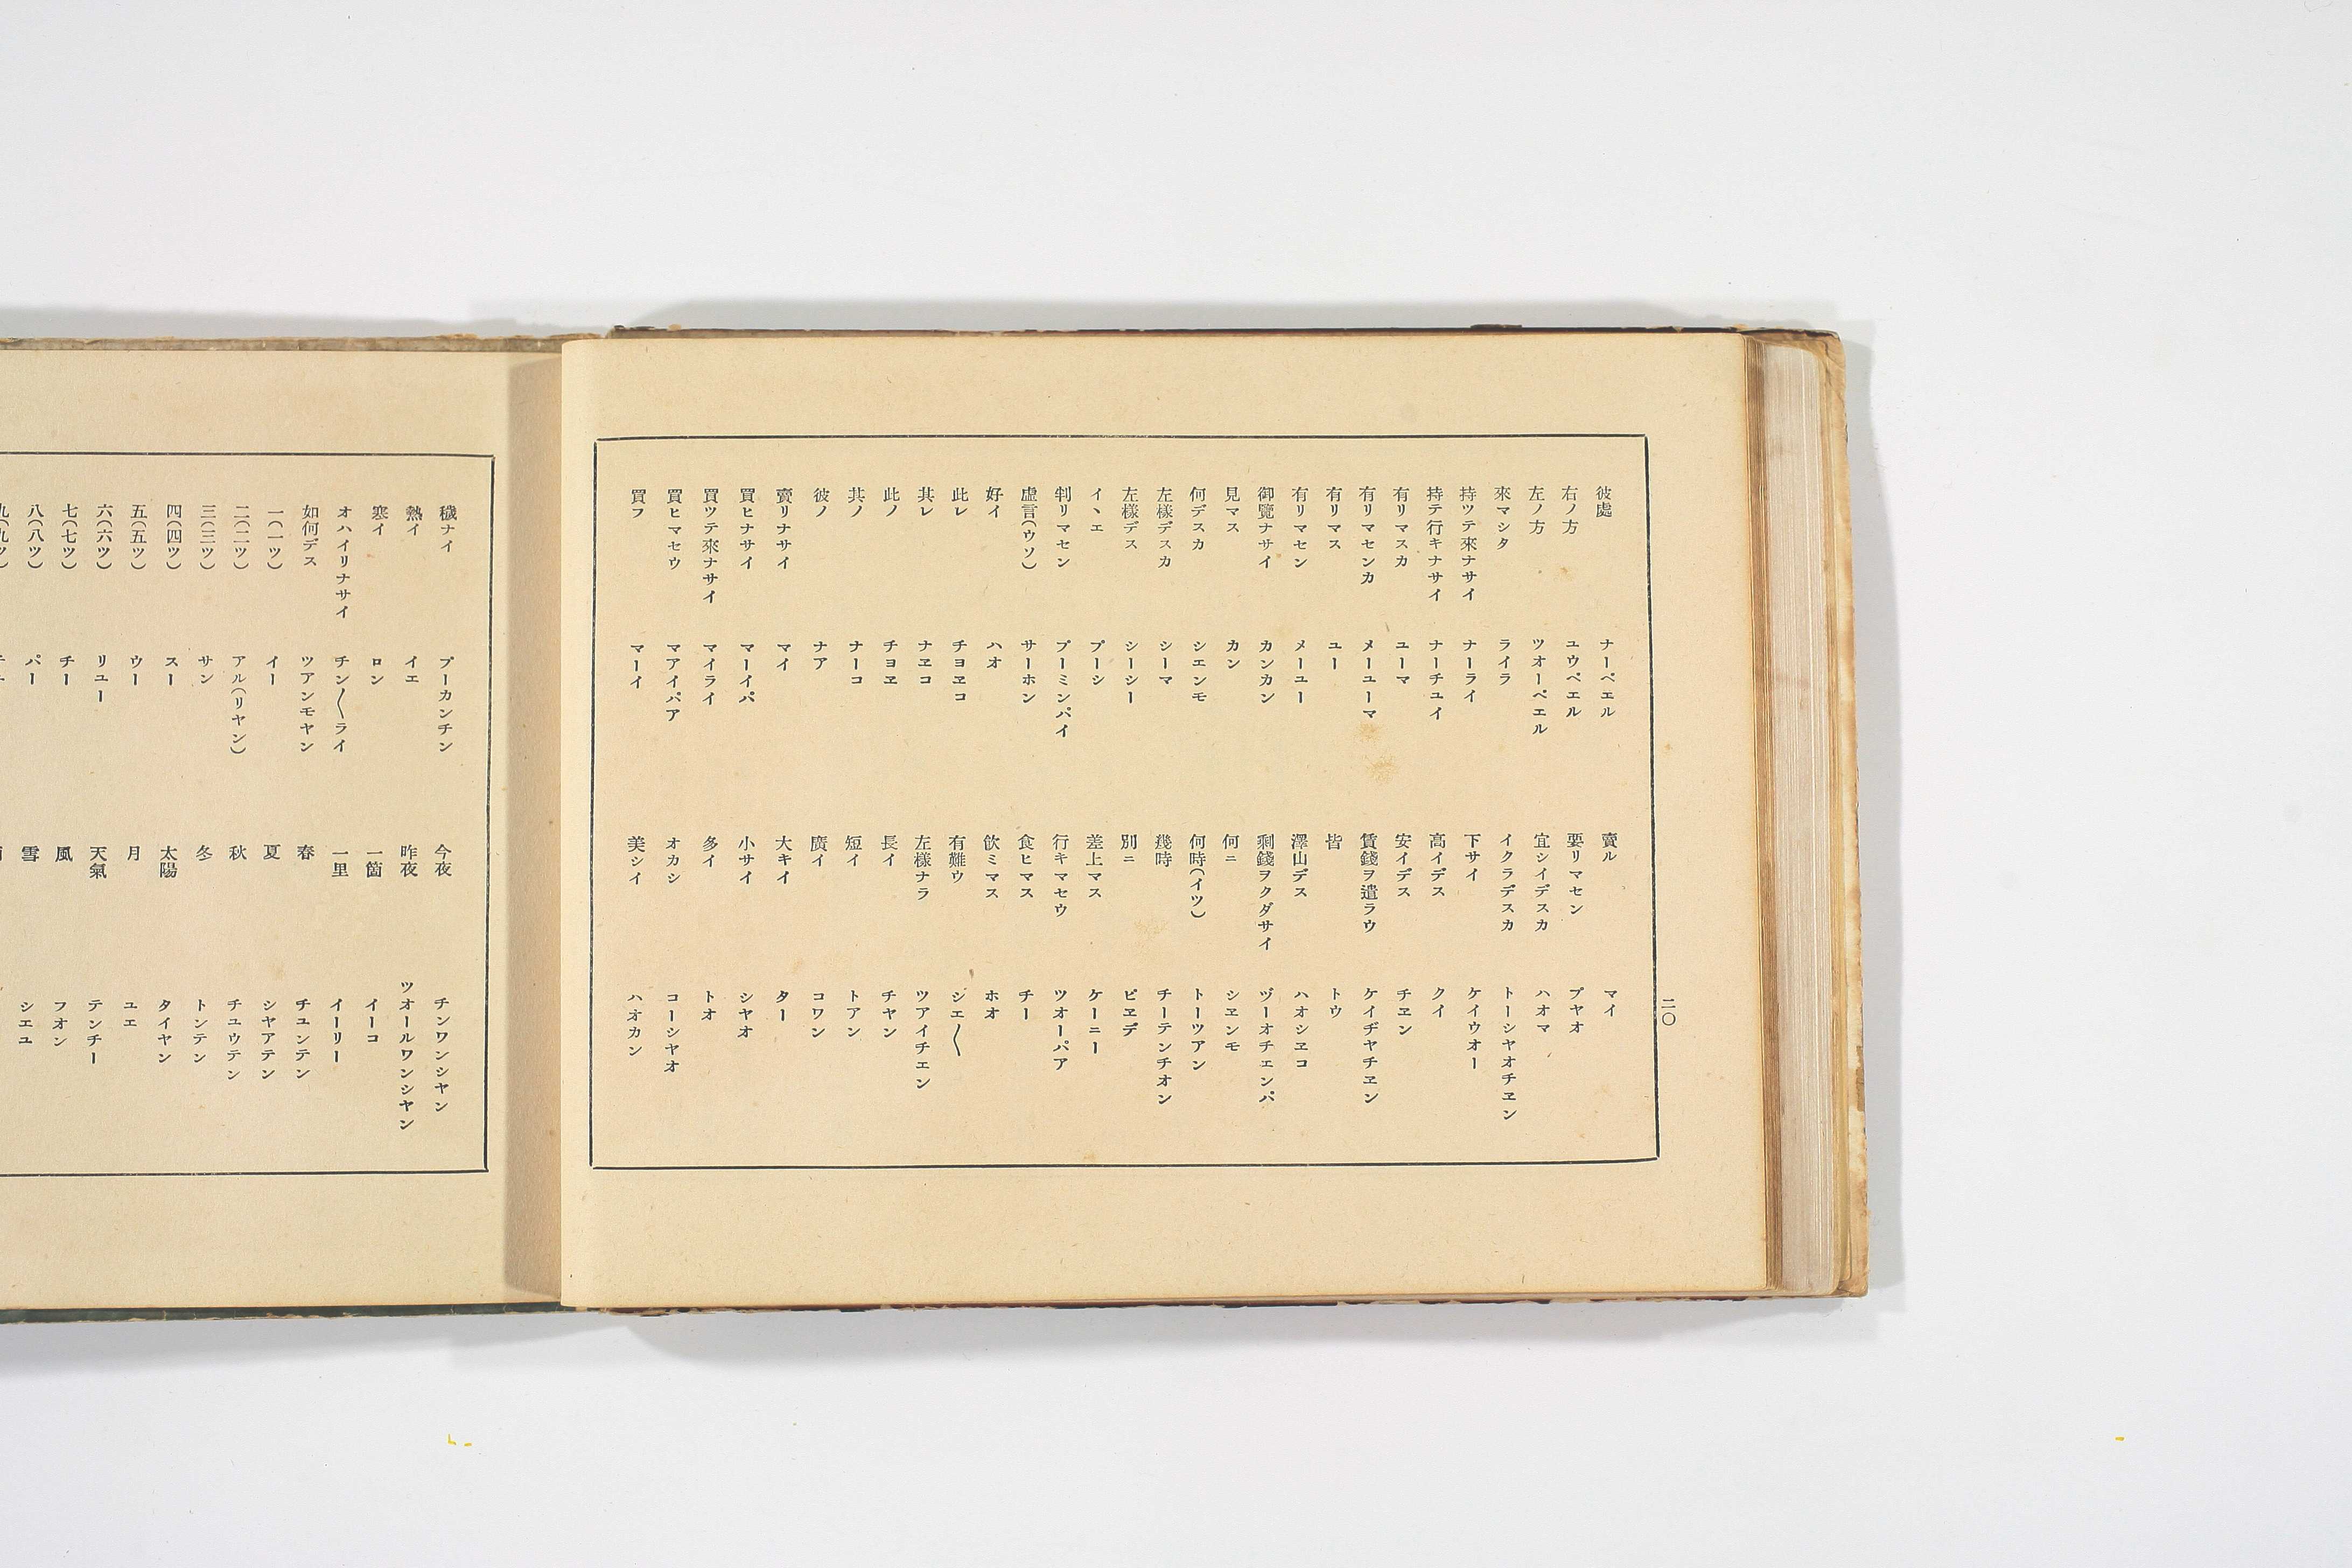 二〇
彼處 ナーペエル
右ノ方 ユウペエル
左ノ方 ツオーペエル
來マシタ ライラ
持ツテ來ナサイ ナーライ
持テ行キナサイ ナーチユイ
有リマスカ ユーマ
有リマセンカ メーユーマ
有リマス ユー
有リマセン メーユー
御覽ナサイ カンカン
見マス カン
何デスカ シエンモ
左樣デスカ シーマ
左樣デス シーシー
イヽエ プーシ
判リマセン プーミンパイ
虛言(ウソ) サーホン
好イ ハオ
此レ チヨヱコ
其レ ナヱコ
此ノ チヨヱ
其ノ ナーコ
彼ノ ナア
賣リナサイ マイ
買ヒナサイ マーイパ
買ツテ來ナサイ マイライ
買ヒマセウ マアイパア
買フ マーイ
賣ル マイ
要リマセン プヤオ
宜シイデスカ ハオマ
イクラデスカ トーシヤオチヱン
下サイ ケイウオー
高イデス クイ
安イデス チヱン
賃錢ヲ遣ラウ ケイヂヤチヱン
皆 トウ
澤山デス ハオシヱコ
剩錢ヲクダサイ ヅーオチエンパ
何ニ シヱンモ
何時(イツ) トーツアン
幾時 チーテンチオン
別ニ ピヱデ
差上マス ケーニー
行キマセウ ツオーパア
食ヒマス チー
飮ミマス ホオ
有難ウ シエ〱
左樣ナラ ツアイチエン
長イ チヤン
短イ トアン
廣イ コワン
大キイ ター
小サイ シヤオ
多イ トオ
オカシ コーシヤオ
美シイ ハオカン
穢ナイ プーカンチン
熱イ イエ
寒イ ロン
オハイリナサイ チン〱ライ
如何デス ツアンモヤン
一(一ツ) イー
二(二ツ) アル(リヤン)
三(三ツ) サン
四(四ツ) スー
五(五ツ) ウー
六(六ツ) リユー
七(七ツ) チー
八(八ツ) パー
今夜 チンワンシヤン
昨夜 ツオールワンシヤン
一箇 イーコ
一里 イーリー
春 チユンテン
夏 シヤアテン
秋 チユウテン
冬 トンテン
太陽 タイヤン
月 ユエ
天氣 テンチー
風 フオン
雪 シエユ